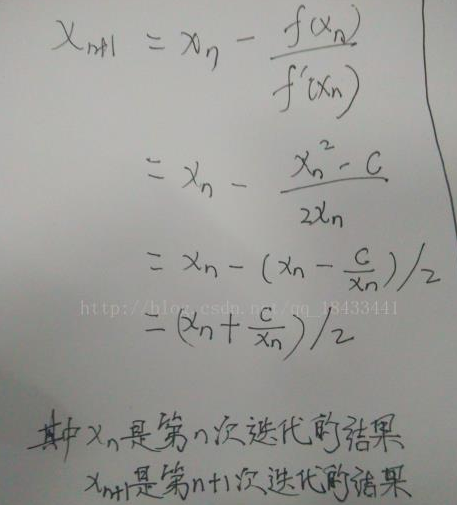 xₙ₊₁ = xₙ - f(xₙ) / f'(xₙ)
= xₙ - (xₙ² - c) / 2xₙ
= xₙ - (xₙ - c/xₙ)/2
http://blog.csdn.net/qq_18433441
= (xₙ + c/xₙ)/2
其中xₙ是第n次迭代的结果
xₙ₊₁是第n+1次迭代的结果